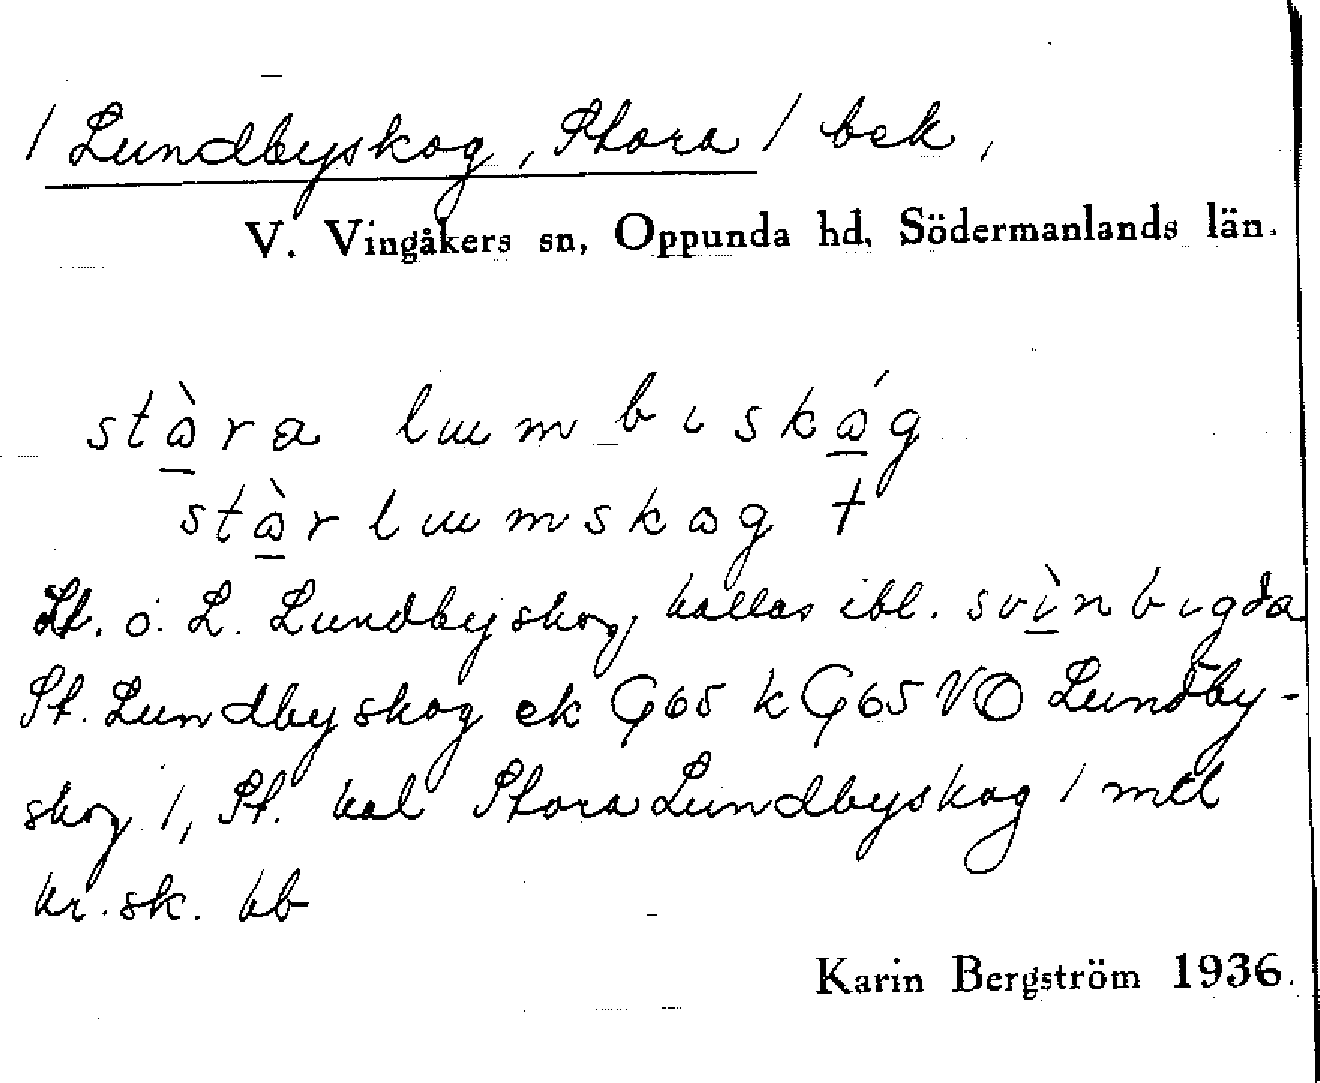 / Lundbyskog, Stora / bek,
V. Vingåkers sn, Oppunda hd, Södermanlands län.
stàra lumbıskág
stàrlumskag †
St. o. L. Lundbyskog kallas ibl. svìnbıgda
St. Lundbyskog ek G65 k G65 VO Lundby-
skog /, St. kal Stora Lundbyskog / mtl
kr. sk. kb
Karin Bergström 1936.